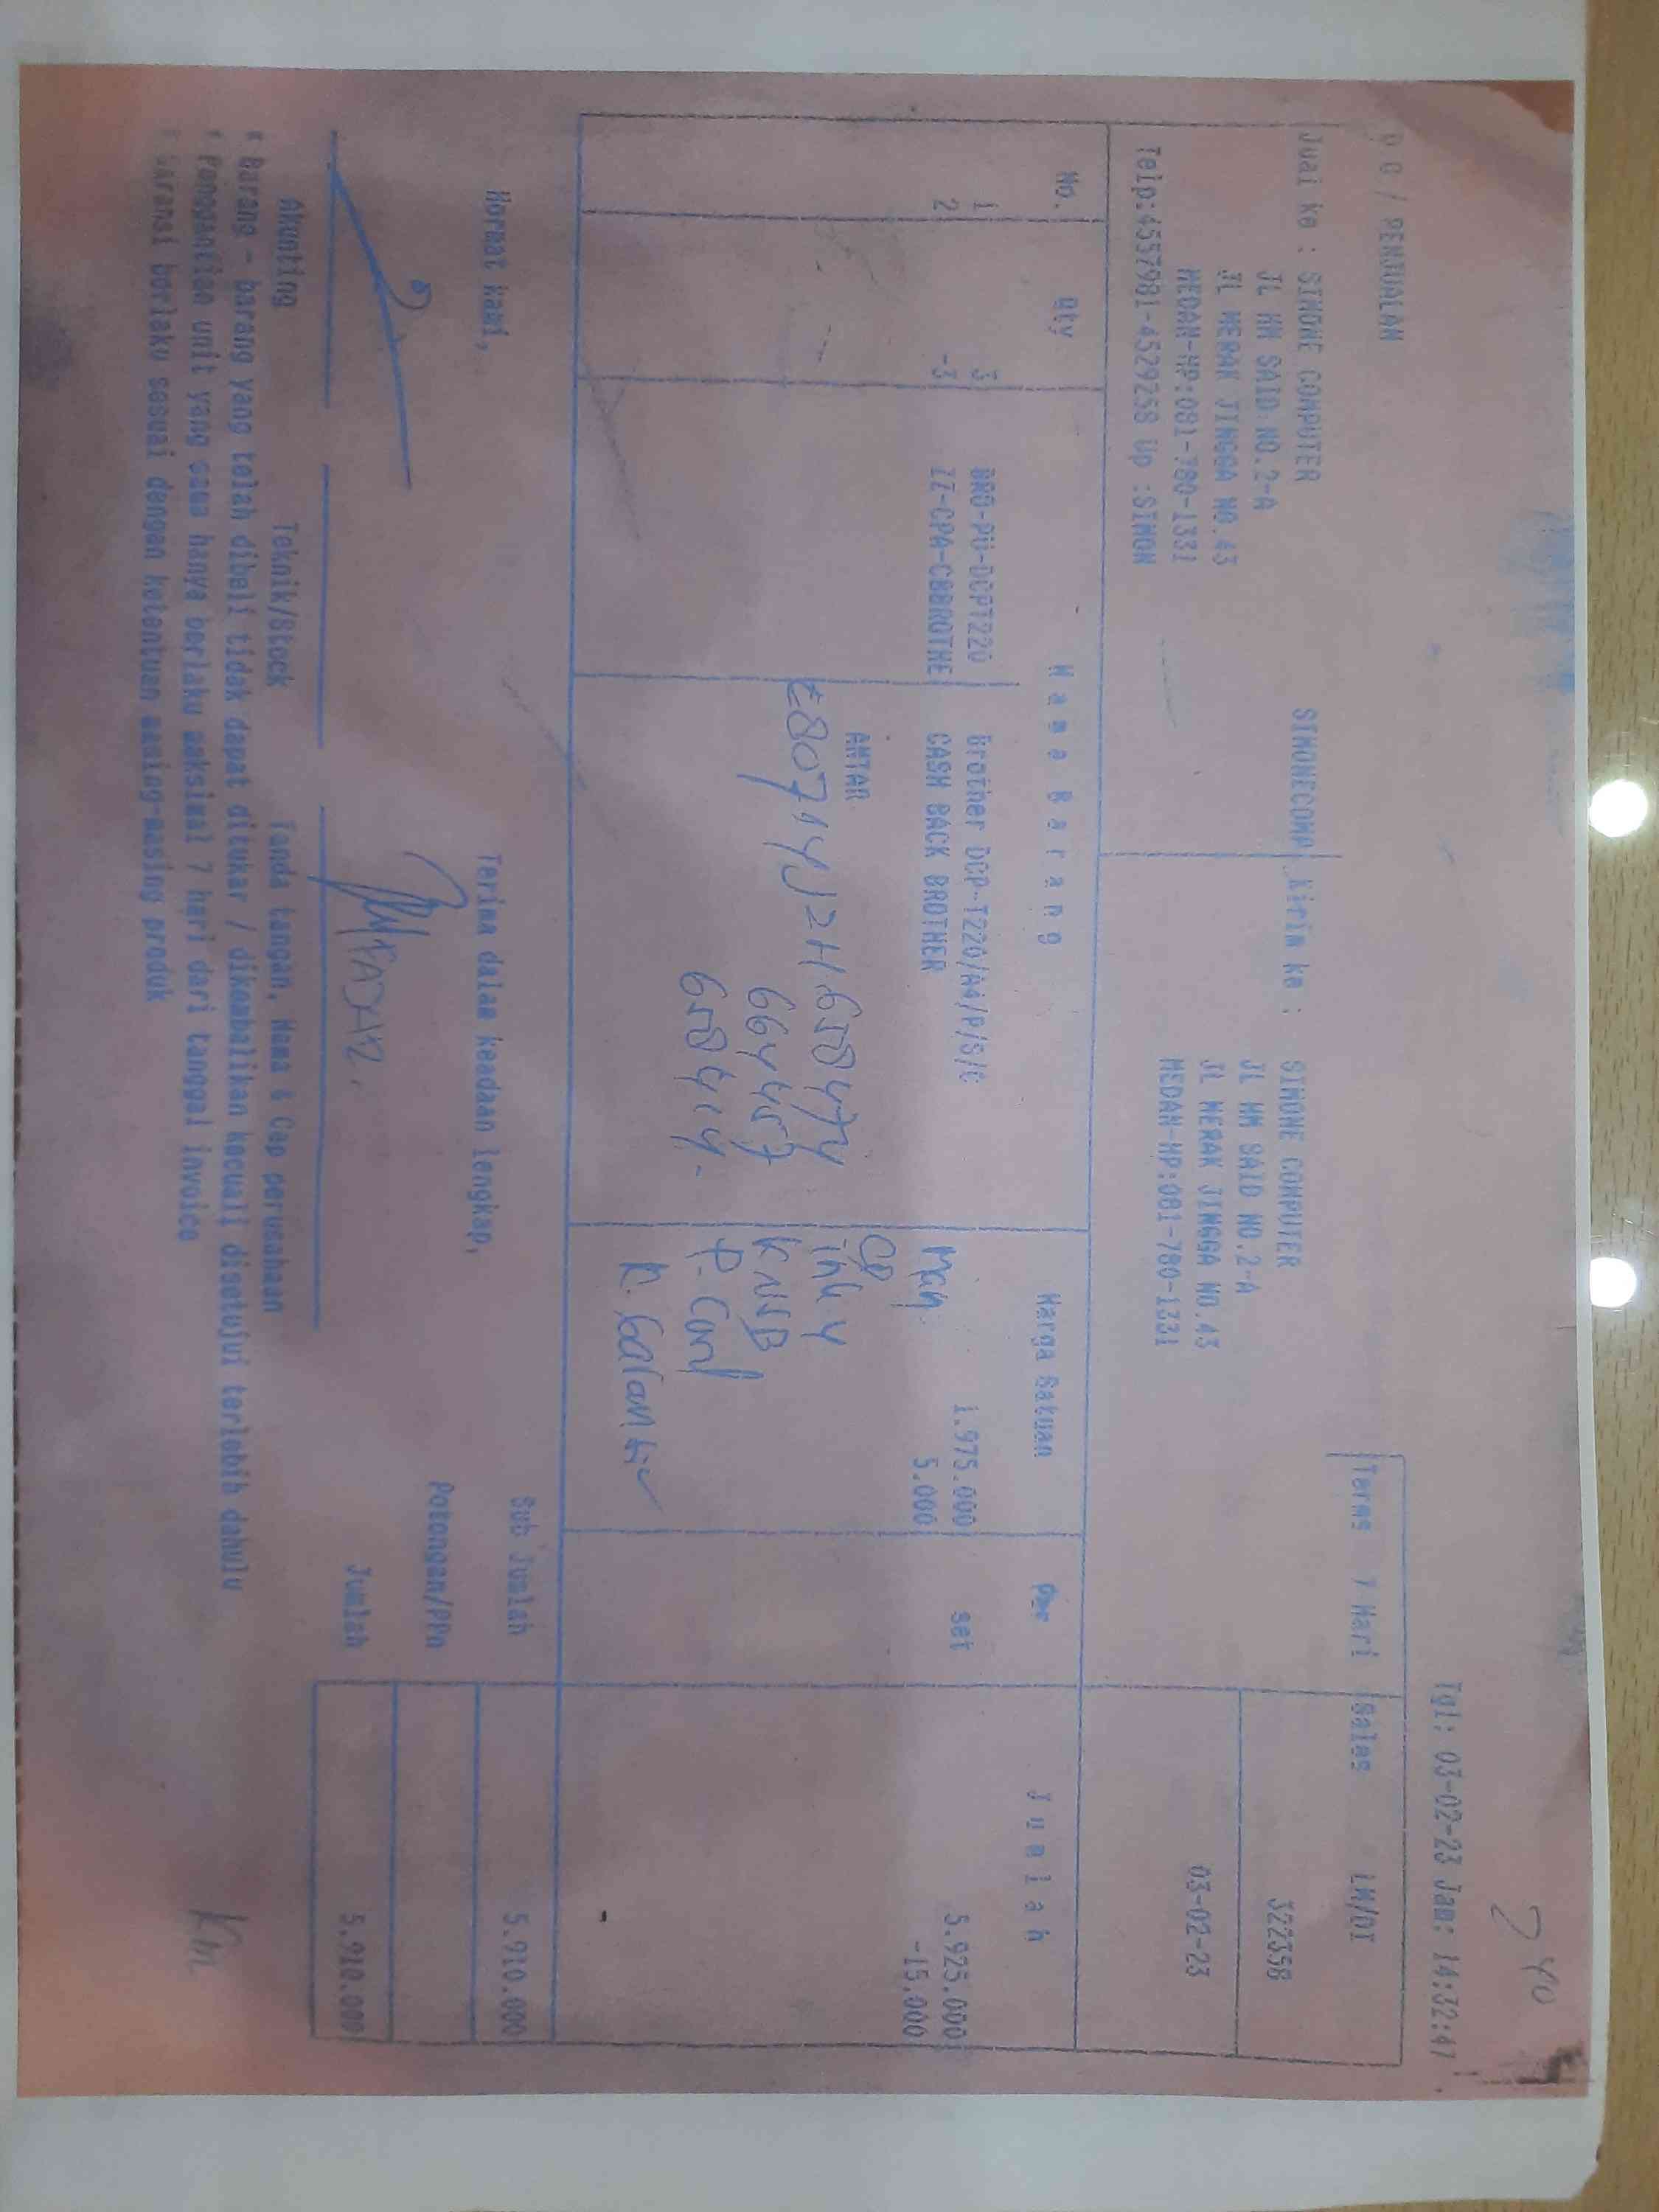 / PENJUALAN
Tgl: 03-02-23 Jam: 14:32:47
Jual ke : SIMONE COMPUTER
SIMONECOMP
JL HM SAID NO.2-A
JL MERAK JINGGA NO.43
MEDAN-HP:081-780-1331
Telp:4557981-4529258 Up :SIMON
Kirim ke : SIMONE COMPUTER
JL HM SAID NO.2-A
JL MERAK JINGGA NO.43
MEDAN-HP:081-780-1331
Terms 7 Hari Sales LW/DI
322358
03-02-23
No. Qty Nama Barang Harga Satuan Per Jumlah
1 3 BRO-PU-DCPT220 Brother DCP-T220/A4/P/S/C 1.975.000 set 5.925.000
2 -3 ZZ-CPA-CBBROTHE CASH BACK BROTHER 5.000 -15.000
ANTAR
664457
658414
Man
CD
ink 4
K. USB
K. Garansi
Hormat Kami,
Terima dalam keadaan lengkap,
Sub Jumlah 5.910.000
Potongan/PPn
Jumlah 5.910.000
Akunting Teknik/Stock Tanda tangan, Nama & Cap perusahaan
* Barang - barang yang telah dibeli tidak dapat ditukar / dikembalikan kecuali disetujui terlebih dahulu
* Penggantian unit yang sama hanya berlaku maksimal 7 hari dari tanggal invoice
* Garansi berlaku sesuai dengan ketentuan masing-masing produk